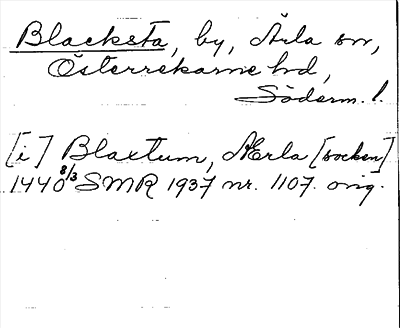 Blacksta, by, Ärla sn,
Österrekarne hd,
Söderm. l.
[i] Blaxtum, Ærla [socken]
1440 8/3 SMR 1937 nr. 1107. orig.